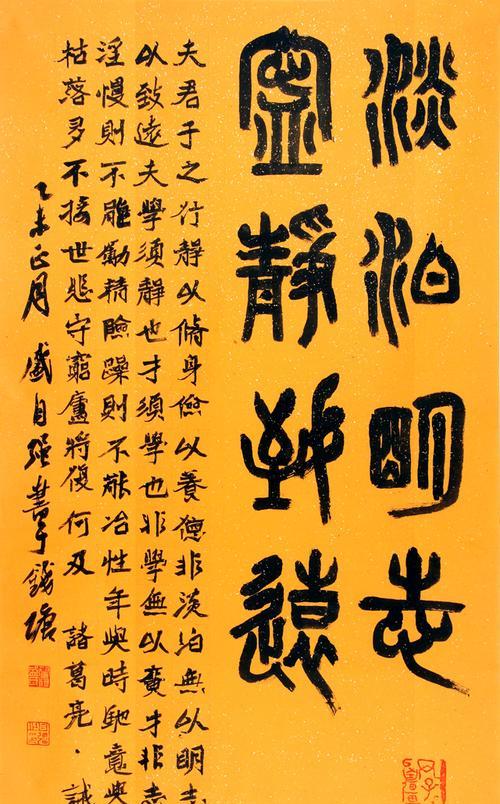 淡泊明志
寧靜致遠
夫君子之行靜以脩身儉以養德非淡泊無以明志
以致遠夫學須靜也才須學也非學無以廣才非志
淫慢則不能勵精險躁則不能冶性年與時馳意與
枯落多不接世悲守窮廬將復何及 諸葛亮·誡
乙未正月盛自强書于錢塘